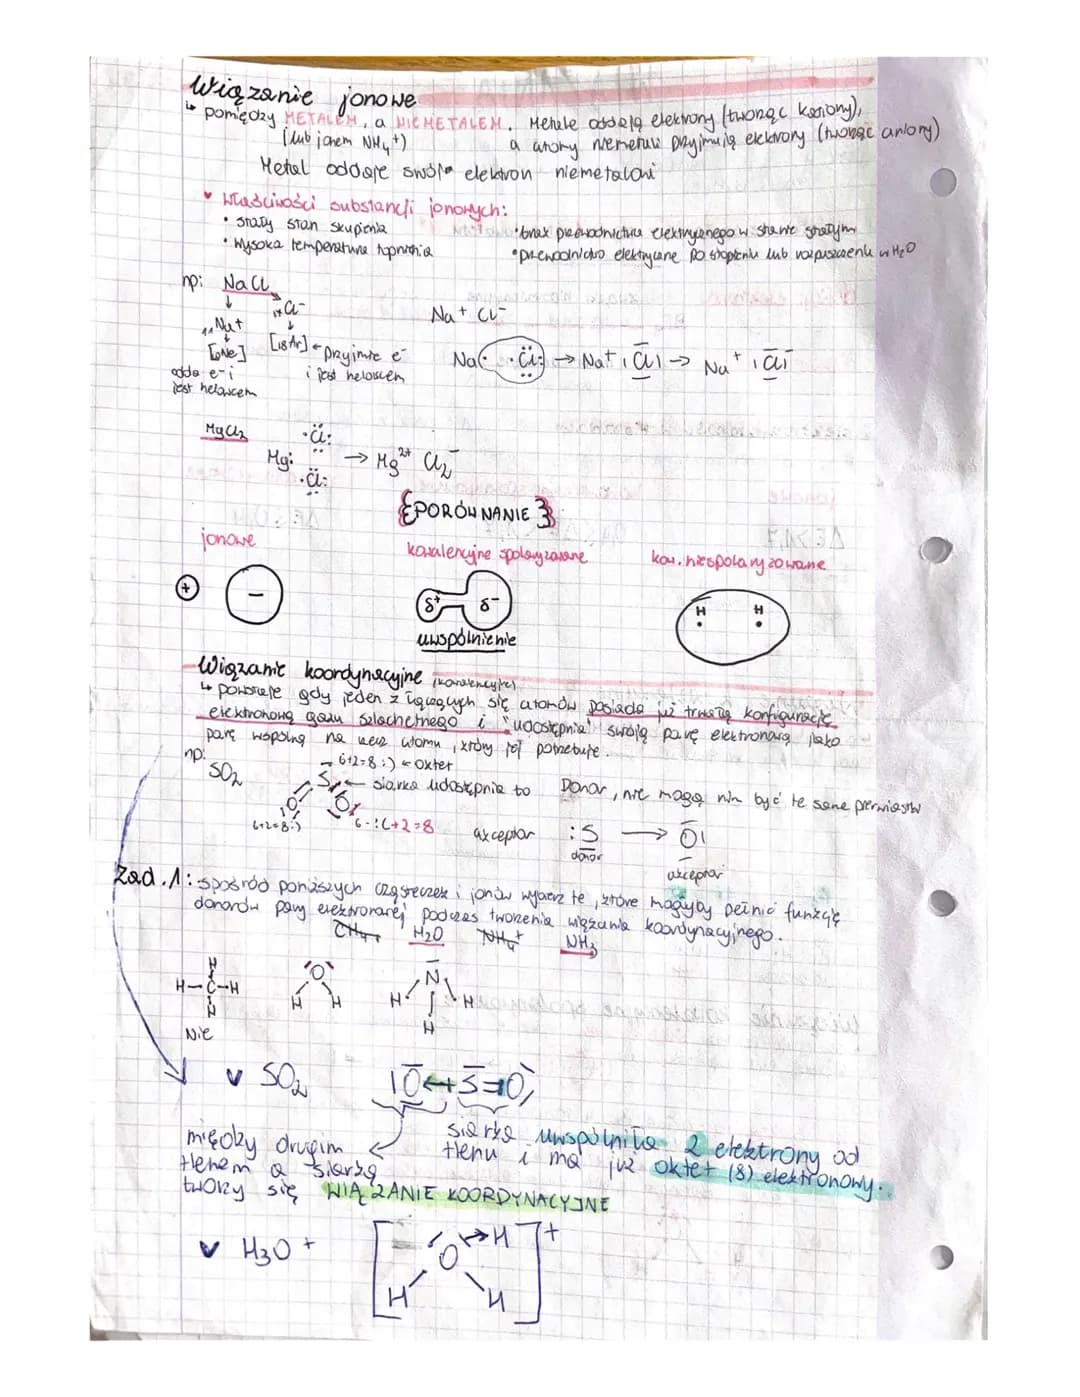 Wiązanie jonowe
↳ pomiędzy METALEM, a NIEMETALEM. Metale oddają elektrony (tworząc kationy),
(lub jonem NH₄⁺) a atomy niemetali przyjmują elektrony (tworząc aniony)
Metal oddaje swój elektron niemetalowi
♥ Właściwości substancji jonowych:
• stały stan skupienia
• wysoka temperatura topnienia
• brak przewodnictwa elektrycznego w stanie stałym
• przewodnictwo elektryczne po stopieniu lub rozpuszczeniu w H₂O
np: NaCl
↓
₁₁Na⁺ ₁₇Cl⁻
↓ ↓
[₁₀Ne] [₁₈Ar] ← przyjmie e⁻
odda e⁻ i i jest helowcem
jest helowcem
Na⁺ Cl⁻
Na· ·Cl: → Na⁺, Cl → Na⁺, Cl⁻
MgCl₂
·Cl:
Mg: → Mg²⁺ Cl₂⁻
·Cl:
{PORÓWNANIE}
jonowe
kowalencyjne spolaryzowane
kow. niespolaryzowane
+ −
δ⁺ δ⁻
H H
uwspólnienie
Wiązanie koordynacyjne (kowalencyjne)
↳ powstaje gdy jeden z łączących się atomów posiada już trwałą konfigurację
elektronową gazu szlachetnego i "udostępnia" swoją parę elektronową jako
parę wspólną na rzecz atomu, który jej potrzebuje.
np:
SO₂
→ 6+2=8 :) ← oktet
S ← siarka udostępnia to
O O
6+2=8:) 6-:(+2=8
Donor, nie mogą nim być te same pierwiastki
akceptor :S → O
donor
akceptor
Zad.1: spośród poniższych cząsteczek i jonów wybierz te, które mogłyby pełnić funkcję
donorów pary elektronowej podczas tworzenia wiązania koordynacyjnego.
CH₄, H₂O NH₄⁺ NH₃
H
H−C−H
H
Nie
O
H H
N
H H
H
v SO₂ |O←S=O
siarka uwspólniła 2 elektrony od
tlenu i ma już oktet (8) elektronowy.
między drugim
tlenem a siarką
tworzy się WIĄZANIE KOORDYNACYJNE
v H₃O⁺
[O→H]⁺
H H